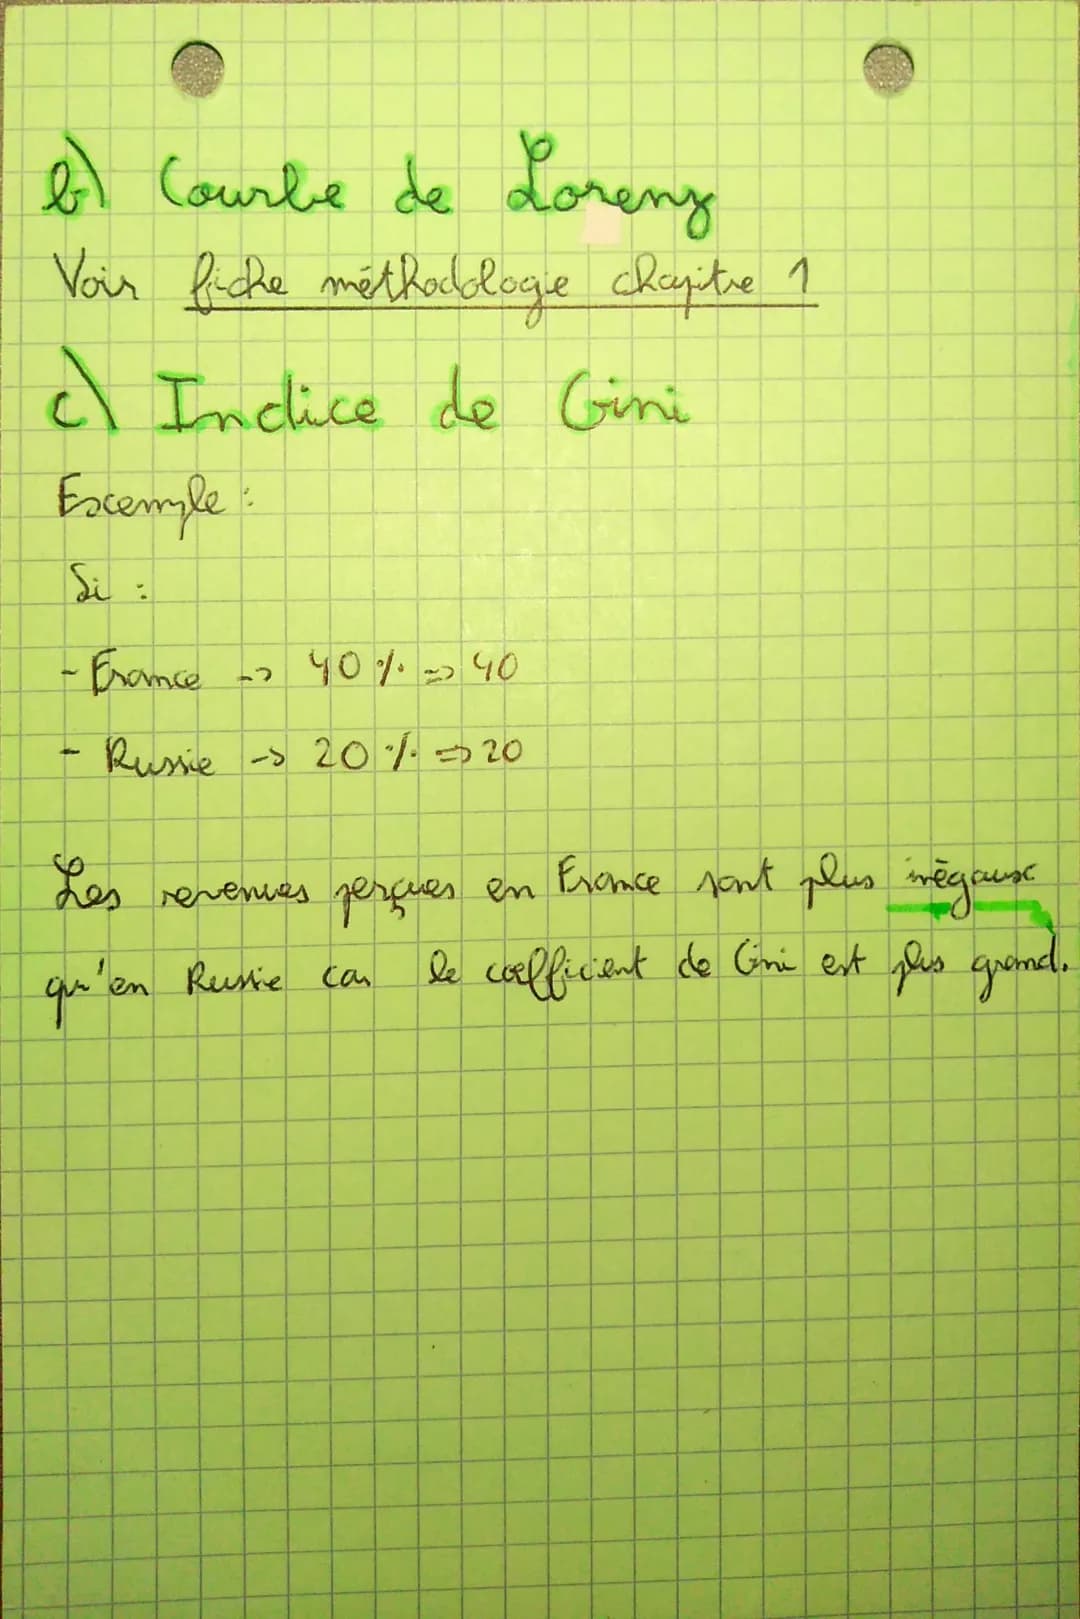 b) Courbe de Lorenz
Voir fiche méthodologie chapitre 1
c) Indice de Gini
Exemple :
Si :
- France -> 40 % => 40
- Russie -> 20 % => 20
Les revenues perçues en France sont plus inégaux
qu'en Russie car le coefficient de Gini est plus grand.